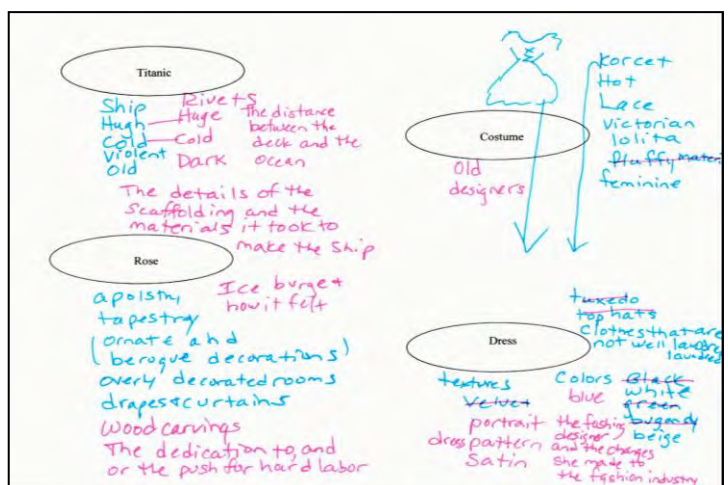 Titanic
Ship
Hugh
Cold
Violent
Old
Rivets
Huge
Cold
Dark
The distance
between the
deck and the
ocean
The details of the
Scaffolding and the
materials it took to
make the ship
Rose
apolstry
tapestry
(ornate and
beroque decorations)
overly decorated rooms
drapes & curtains
Ice burge &
how it felt
wood carvings
The dedication to, and
or the push for hard labor
Costume
Old
designers
Korcet
Hot
Lace
Victorian
lolita
fluffy materi
feminine
Dress
tuxedo
top hats
clothes that are
not well
laundred
textures
Velvet
portrait
dress pattern
Satin
Colors
blue
Black
white
green
bugendy
beige
the fashing
designer
and the changes
she made to
the fashion industry